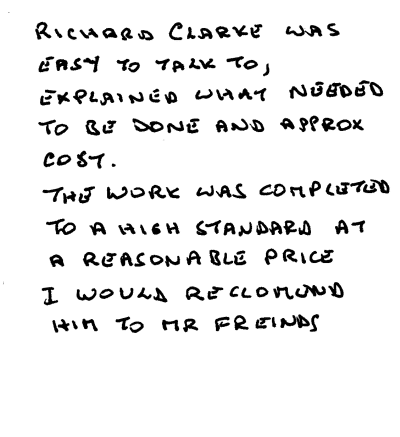 RICHARD CLARKE WAS
EASY TO TALK TO,
EXPLAINED WHAT NEEDED
TO BE DONE AND APPROX
COST.
THE WORK WAS COMPLETED
TO A HIGH STANDARD AT
A REASONABLE PRICE
I WOULD RECLOMUND
HIM TO MR FREINDS